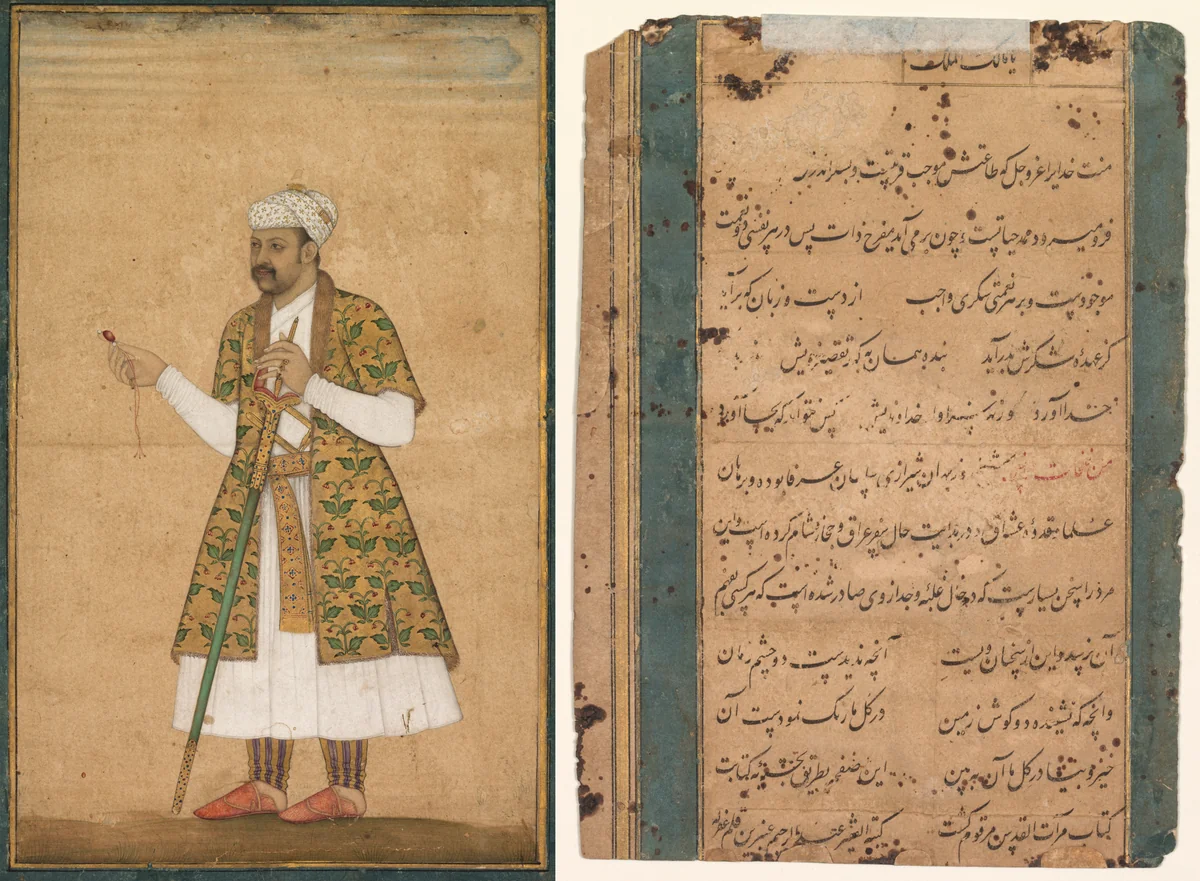 یا مالک الملک
منت خدایرا عز و جل که طاعتش موجب قربتست و بشکر اندرش
فرو میرود ممد حیاتست و چون بر می آید مفرح ذات پس در هر نفسی دو نعمت
موجودست و بر هر نعمتی شکری واجب از دست و زبان که برآید
کز عهده شکرش بدرآید بنده همان به که ز تقصیر خویش
خدا آورد ورنه سزاوار خداوندیش کس نتواند که بجا آورد
شیرازی بوده و بر زبان
علما عشاق در بدایت حال سفر عراق و حجاز و شام کرده است و این
مرد را سخن بسیارست که در حال غلبه وجد از وی صادر شده است که هر کسی بفهم
آن نرسد و این از سخنان ویست آنچه ندیدست دو چشم زمان
وانچه که نشنیده دو گوش زمین در گل ما رنگ نمودست آن
خیز و بیا در گل ما آن ببین این صفحه بطریق کتابت
کتاب مرآت القدس مرقوم گشت کتبه الفقیر عنبرین قلم غفر له